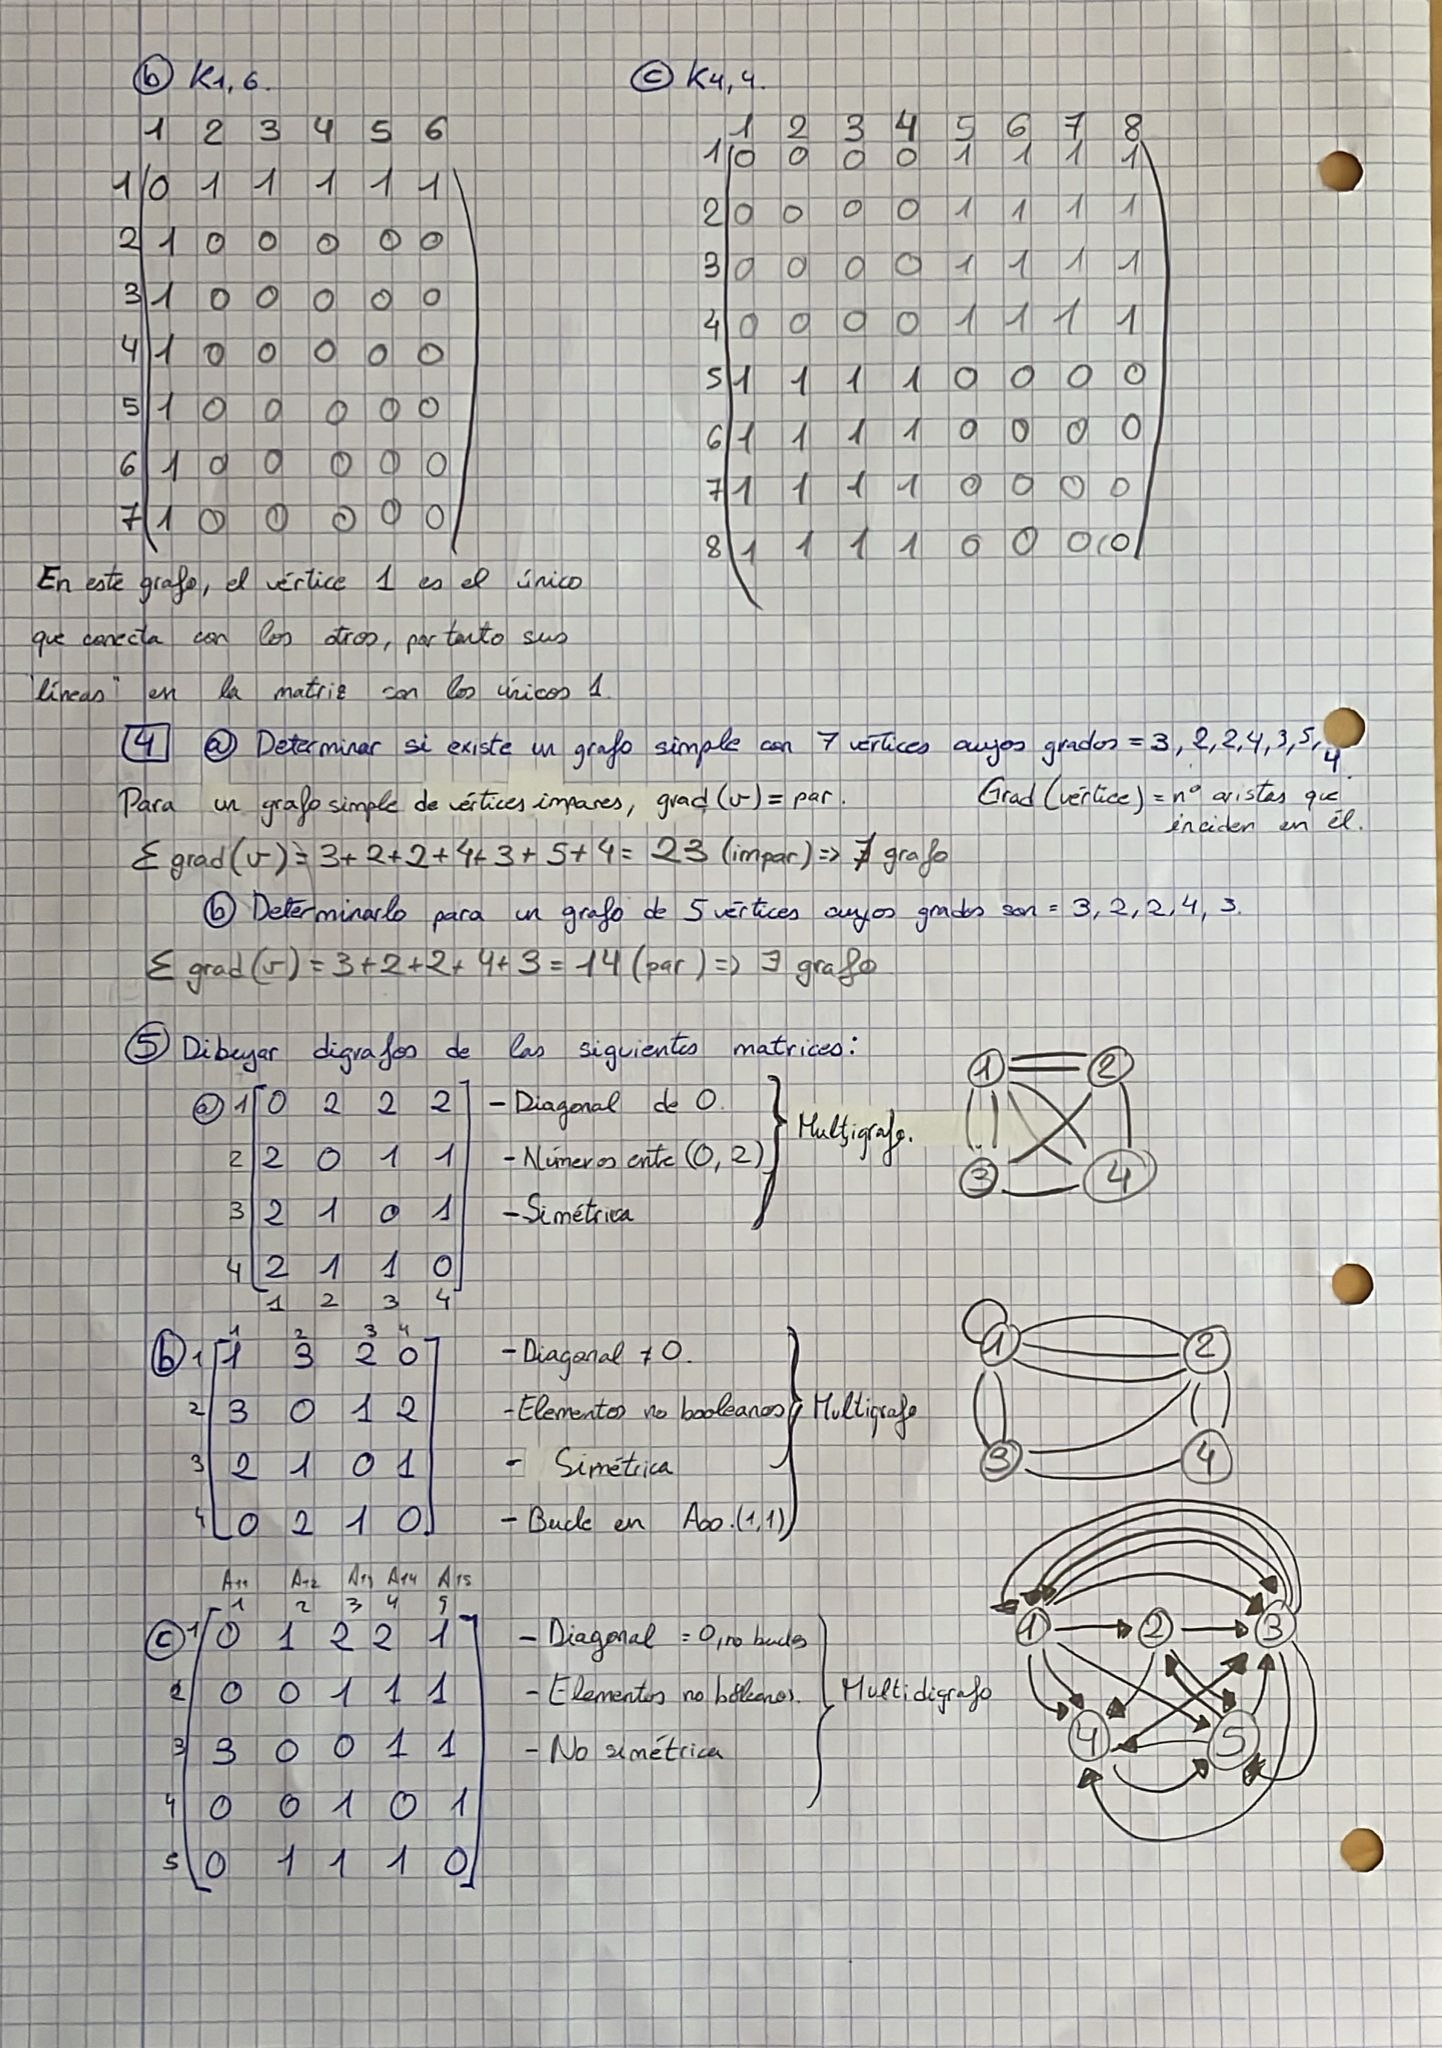 ⓑ K1,6.
1 2 3 4 5 6
1 0 1 1 1 1 1
2 1 0 0 0 0 0
3 1 0 0 0 0 0
4 1 0 0 0 0 0
5 1 0 0 0 0 0
6 1 0 0 0 0 0
7 1 0 0 0 0 0
En este grafo, el vértice 1 es el único
que conecta con los otros, por tanto sus
"líneas" en la matriz son los únicos 1.
ⓒ K4,4.
1 2 3 4 5 6 7 8
1 0 0 0 0 1 1 1 1
2 0 0 0 0 1 1 1 1
3 0 0 0 0 1 1 1 1
4 0 0 0 0 1 1 1 1
5 1 1 1 1 0 0 0 0
6 1 1 1 1 0 0 0 0
7 1 1 1 1 0 0 0 0
8 1 1 1 1 0 0 0 0
4 ⓐ Determinar si existe un grafo simple con 7 vértices cuyos grados = 3, 2, 2, 4, 3, 5, 4.
Para un grafo simple de vértices impares, grad (v) = par.
Grad (vértice) = nº aristas que
inciden en él.
Σ grad (v) = 3+2+2+4+3+5+4 = 23 (impar) => ∄ grafo
ⓑ Determinarlo para un grafo de 5 vértices cuyos grados son = 3, 2, 2, 4, 3.
Σ grad (v) = 3+2+2+4+3 = 14 (par) => ∃ grafo
⑤ Dibujar digrafos de las siguientes matrices:
ⓐ 1 0 2 2 2 - Diagonal de 0.
2 2 0 1 1 - Números ente (0, 2)
3 2 1 0 1 - Simétrica
4 2 1 1 0
1 2 3 4
Multigrafo.
1 2
3 4
1 2 3 4
ⓑ 1 1 3 2 0 - Diagonal ≠ 0.
2 3 0 1 2 - Elementos no booleanos
3 2 1 0 1 - Simétrica
4 0 2 1 0 - Bucle en A00.(1,1)
Multigrafo
1 2
3 4
A11 A12 A13 A14 A15
1 2 3 4 5
ⓒ 1 0 1 2 2 1 - Diagonal = 0, no bucles
2 0 0 1 1 1 - Elementos no bóleanos.
3 3 0 0 1 1 - No simétrica
4 0 0 1 0 1
5 0 1 1 1 0
Multidigrafo
1 2 3
4 5